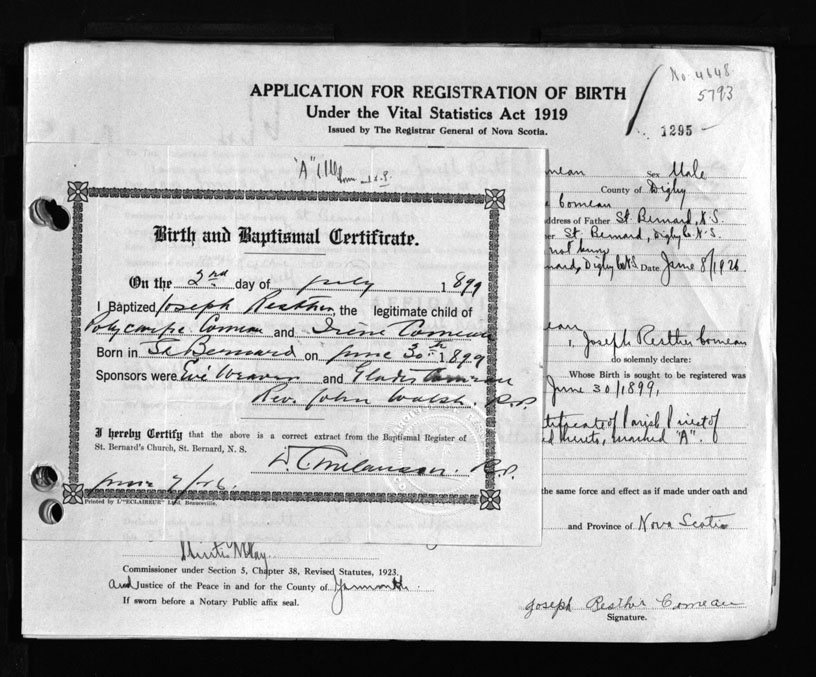 No 4648
5793
APPLICATION FOR REGISTRATION OF BIRTH
Under the Vital Statistics Act 1919
Issued by The Registrar General of Nova Scotia.
1295
"A"
Sex Male
County of Digby
Comeau
ddress of Father St. Bernard, N.S.
St. Bernard, Digby Co. N.S.
not
Digby Co N.S. Date June 8/1926
Birth and Baptismal Certificate.
On the 2nd day of July 1899
I Baptized Joseph Resther, the legitimate child of
Polycarpe Comeau and Irène Comeau
Born in St Bernard on June 30th 1899
Sponsors were Evé Weaver and Gladis Comeau
Rev. John Walsh. P.P.
I hereby Certify that the above is a correct extract from the Baptismal Register of
St. Bernard's Church, St. Bernard, N. S.
P.P.
June 7/26.
Printed by L'"ECLAIREUR" Ltd, Beauceville.
I, Joseph Resther Comeau
do solemnly declare:
Whose Birth is sought to be registered was
June 30/1899,
of Parish Priest of
marked "A".
the same force and effect as if made under oath and
and Province of Nova Scotia
Commissioner under Section 5, Chapter 38, Revised Statutes, 1923.
and Justice of the Peace in and for the County of Yarmouth.
If sworn before a Notary Public affix seal.
Joseph Resther Comeau
Signature.